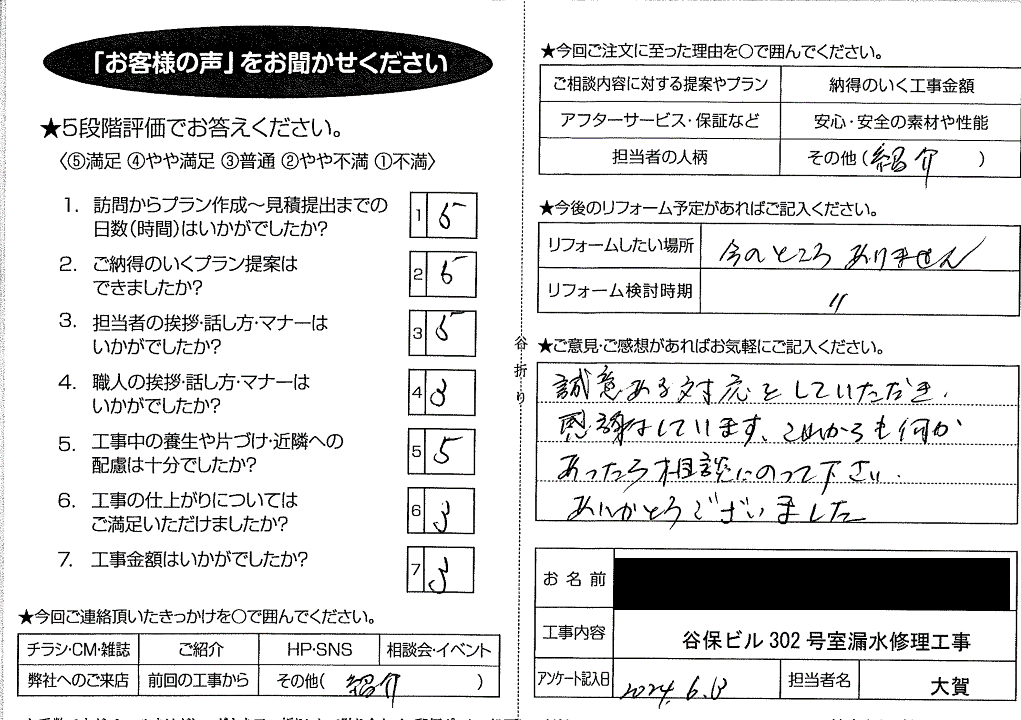 「お客様の声」をお聞かせください
★5段階評価でお答えください。
〈⑤満足 ④やや満足 ③普通 ②やや不満 ①不満〉
1. 訪問からプラン作成～見積提出までの
日数(時間)はいかがでしたか?
1 5
2. ご納得のいくプラン提案は
できましたか?
2 5
3. 担当者の挨拶・話し方・マナーは
いかがでしたか?
3 5
4. 職人の挨拶・話し方・マナーは
いかがでしたか?
4 3
5. 工事中の養生や片づけ・近隣への
配慮は十分でしたか?
5 5
6. 工事の仕上がりについては
ご満足いただけましたか?
6 3
7. 工事金額はいかがでしたか?
7 3
★今回ご連絡頂いたきっかけを○で囲んでください。
チラシ・CM・雑誌 ご紹介 HP・SNS 相談会・イベント
弊社へのご来店 前回の工事から その他( 紹介 )
谷折り
★今回ご注文に至った理由を○で囲んでください。
ご相談内容に対する提案やプラン 納得のいく工事金額
アフターサービス・保証など 安心・安全の素材や性能
担当者の人柄 その他( 紹介 )
★今後のリフォーム予定があればご記入ください。
リフォームしたい場所 今のところありません
リフォーム検討時期 〃
★ご意見・ご感想があればお気軽にご記入ください。
誠意ある対応をしていただき、
感謝しています、これからも何か
あったら相談にのって下さい。
ありがとうございました
お名前
工事内容 谷保ビル302号室漏水修理工事
アンケート記入日 2024.6.13 担当者名 大賀